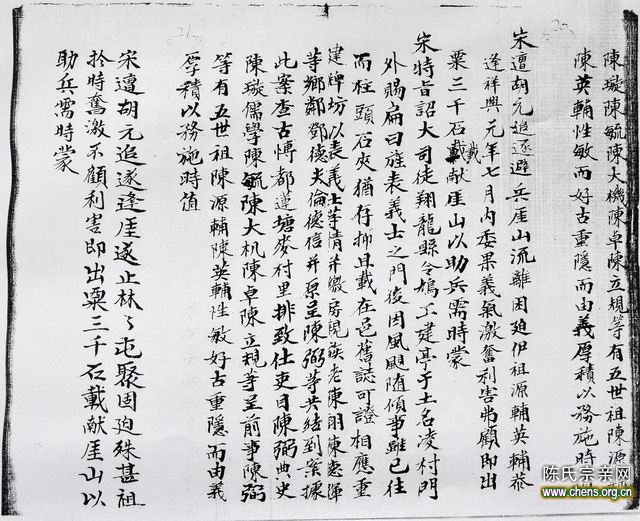 陳璇陳毓陳大機陳卓陳立規等有五世祖陳源輔
陳英輔性敏而好古重隱而由義厚積以務施時
宋遭胡元追逐避兵崖山流離困迫伊祖源輔英輔恭
逢祥興元年七月內委果義氣激奮利害弗顧即出
粟三千石載獻崖山以助兵需時蒙
宋特旨詔大司徒翔龍縣令鳩工建亭于土名凌村門
外賜扁曰旌表義士之門後因風颶隨傾事雖已往
而柱頭石夾猶存抑且載在邑舊誌可證相應重
建牌坊以表義士等情并繳房親族老陳朗陳
等鄉鄰鄧德夫倫德信并原呈陳弼等共結到案據
此案查古博都蓮塘麥村里排致仕吏目陳弼典史
陳璇儒學陳毓陳大机陳卓陳立規等呈前事陳弼
等有五世祖陳源輔陳英輔性敏好古重隱而由義
厚積以務施時值
宋遭胡元追逐逢崖遂止林々屯聚困迫殊甚祖
於時奮激不顧利害即出粟三千石載獻崖山以
助兵需時蒙
陈氏宗亲网
www.chens.org.cn